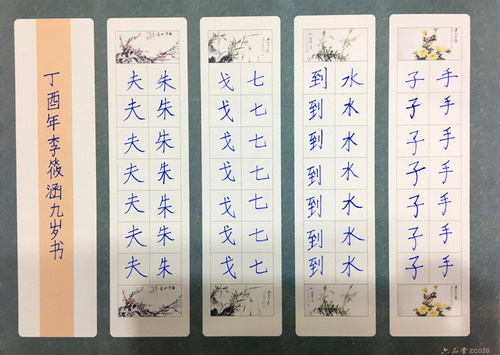 手手手手手手手
子子子子子子子
水水水水水水水
到到到到到到到
七七七七七七七
戈戈戈戈戈戈戈
朱朱朱朱朱朱朱
夫夫夫夫夫夫夫
丁酉年李筱涵九岁书
六品堂ZC026